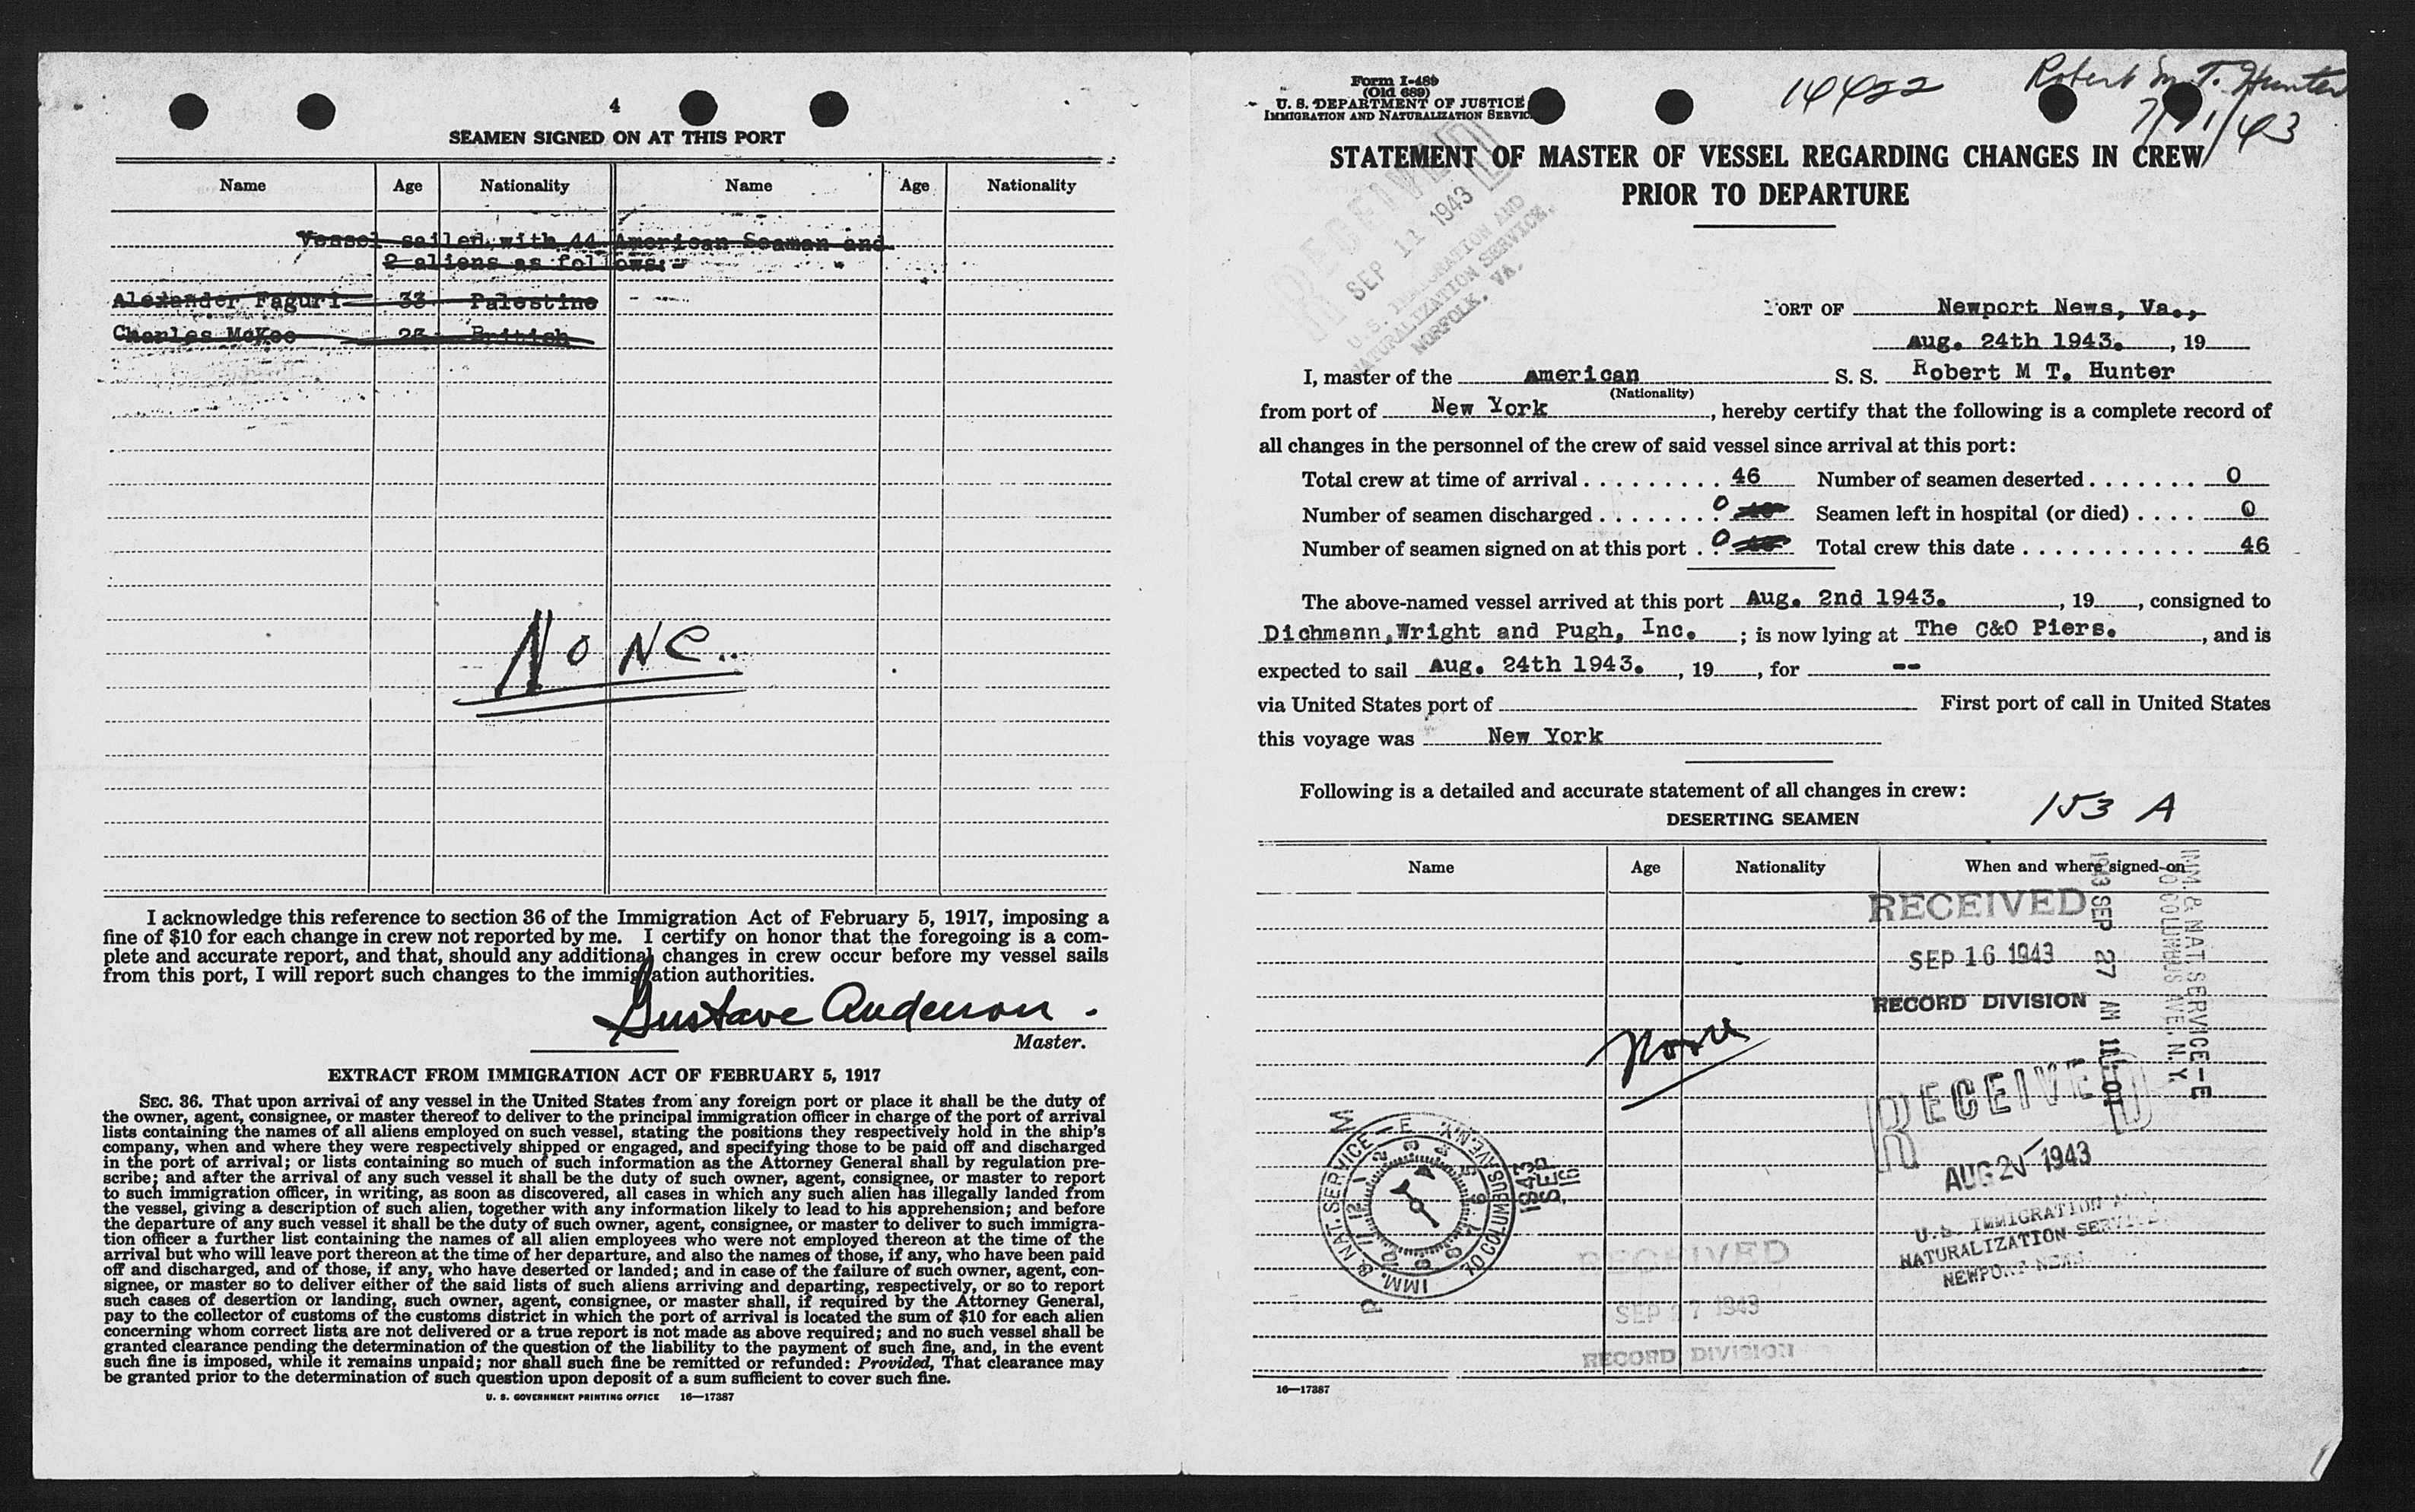 4
SEAMEN SIGNED ON AT THIS PORT
Name Age Nationality Name Age Nationality
Vessel sailed with 44 American Seaman and
2 aliens as follows:-
Alexander Faguri 33 Palestine
Charles McKee 23 British
NONE..
I acknowledge this reference to section 36 of the Immigration Act of February 5, 1917, imposing a
fine of $10 for each change in crew not reported by me. I certify on honor that the foregoing is a com-
plete and accurate report, and that, should any additional changes in crew occur before my vessel sails
from this port, I will report such changes to the immigration authorities.
Gustave Anderson.
Master.
EXTRACT FROM IMMIGRATION ACT OF FEBRUARY 5, 1917
SEC. 36. That upon arrival of any vessel in the United States from any foreign port or place it shall be the duty of
the owner, agent, consignee, or master thereof to deliver to the principal immigration officer in charge of the port of arrival
lists containing the names of all aliens employed on such vessel, stating the positions they respectively hold in the ship's
company, when and where they were respectively shipped or engaged, and specifying those to be paid off and discharged
in the port of arrival; or lists containing so much of such information as the Attorney General shall by regulation pre-
scribe; and after the arrival of any such vessel it shall be the duty of such owner, agent, consignee, or master to report
to such immigration officer, in writing, as soon as discovered, all cases in which any such alien has illegally landed from
the vessel, giving a description of such alien, together with any information likely to lead to his apprehension; and before
the departure of any such vessel it shall be the duty of such owner, agent, consignee, or master to deliver to such immigra-
tion officer a further list containing the names of all alien employees who were not employed thereon at the time of the
arrival but who will leave port thereon at the time of her departure, and also the names of those, if any, who have been paid
off and discharged, and of those, if any, who have deserted or landed; and in case of the failure of such owner, agent, con-
signee, or master so to deliver either of the said lists of such aliens arriving and departing, respectively, or so to report
such cases of desertion or landing, such owner, agent, consignee, or master shall, if required by the Attorney General,
pay to the collector of customs of the customs district in which the port of arrival is located the sum of $10 for each alien
concerning whom correct lists are not delivered or a true report is not made as above required; and no such vessel shall be
granted clearance pending the determination of the question of the liability to the payment of such fine, and, in the event
such fine is imposed, while it remains unpaid; nor shall such fine be remitted or refunded: Provided, That clearance may
be granted prior to the determination of such question upon deposit of a sum sufficient to cover such fine.
U. S. GOVERNMENT PRINTING OFFICE 16—17387
Form I-489
(Old 689)
U. S. DEPARTMENT OF JUSTICE
IMMIGRATION AND NATURALIZATION SERVICE
14422
Robert M. T. Hunter
STATEMENT OF MASTER OF VESSEL REGARDING CHANGES IN CREW
PRIOR TO DEPARTURE
RECEIVED
SEP 11 1943
U. S. IMMIGRATION AND
NATURALIZATION SERVICE.
NORFOLK, VA.
PORT OF Newport News, Va.,
Aug. 24th 1943. , 19
I, master of the American S. S. Robert M T. Hunter
(Nationality)
from port of New York , hereby certify that the following is a complete record of
all changes in the personnel of the crew of said vessel since arrival at this port:
Total crew at time of arrival . . . . . . . . . 46 Number of seamen deserted . . . . . . . 0
Number of seamen discharged . . . . . . . . 0 Seamen left in hospital (or died) . . . . 0
Number of seamen signed on at this port . . 0 Total crew this date . . . . . . . . . . . 46
The above-named vessel arrived at this port Aug. 2nd 1943. , 19 , consigned to
Dichmann,Wright and Pugh, Inc. ; is now lying at The C&O Piers. , and is
expected to sail Aug. 24th 1943. , 19 , for --
via United States port of First port of call in United States
this voyage was New York
Following is a detailed and accurate statement of all changes in crew:
153 A
DESERTING SEAMEN
Name Age Nationality When and where signed on
RECEIVED
SEP 16 1943
RECORD DIVISION
1943 SEP 27 AM 11:01
IMM. & NAT. SERVICE-E
70 COLUMBUS AVE. N.Y.
None
RECEIVED
AUG 25 1943
U.S. IMMIGRATION AND
NATURALIZATION SERVICE
NEWPORT NEWS
IMM. & NAT. SERVICE-E
70 COLUMBUS AVE. N.Y.
1943
SEP
16
RECEIVED
SEP 27 1943
RECORD DIVISION
16—17387